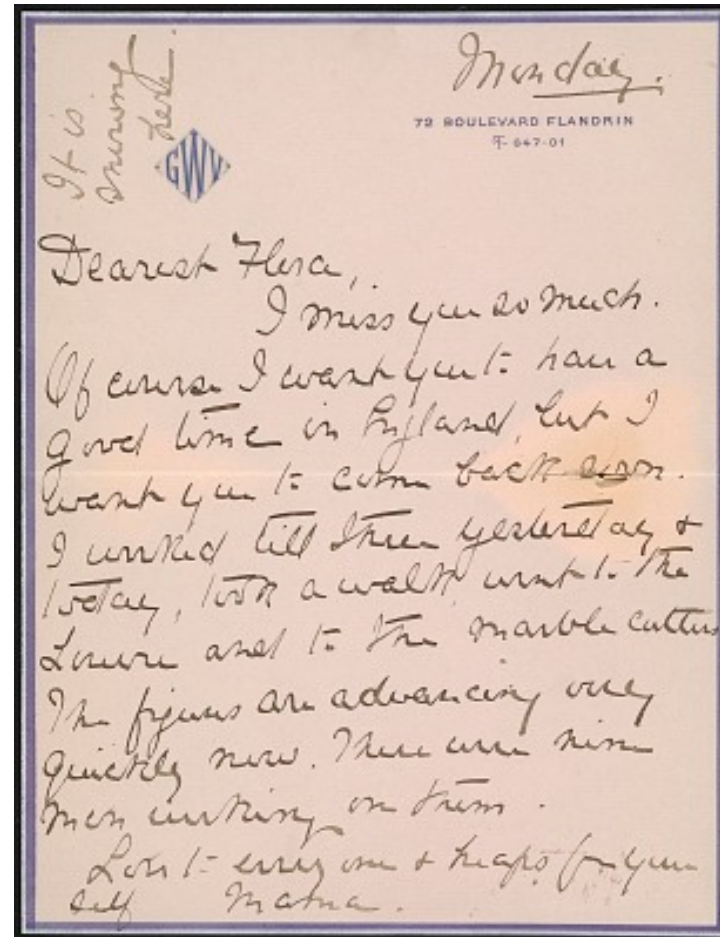 It is
snowing
here.
Monday.
72 BOULEVARD FLANDRIN
T- 647-01
GWV
Dearest Flora,
I miss you so much.
Of course I want you to have a
good time in England, but I
want you to come back soon.
I worked till three yesterday +
today, took a walk, went to the
Louvre and to the marble cutters
The figures are advancing very
quickly now. There were nine
men working on them.
Love to every one + heaps for your
self Mama.